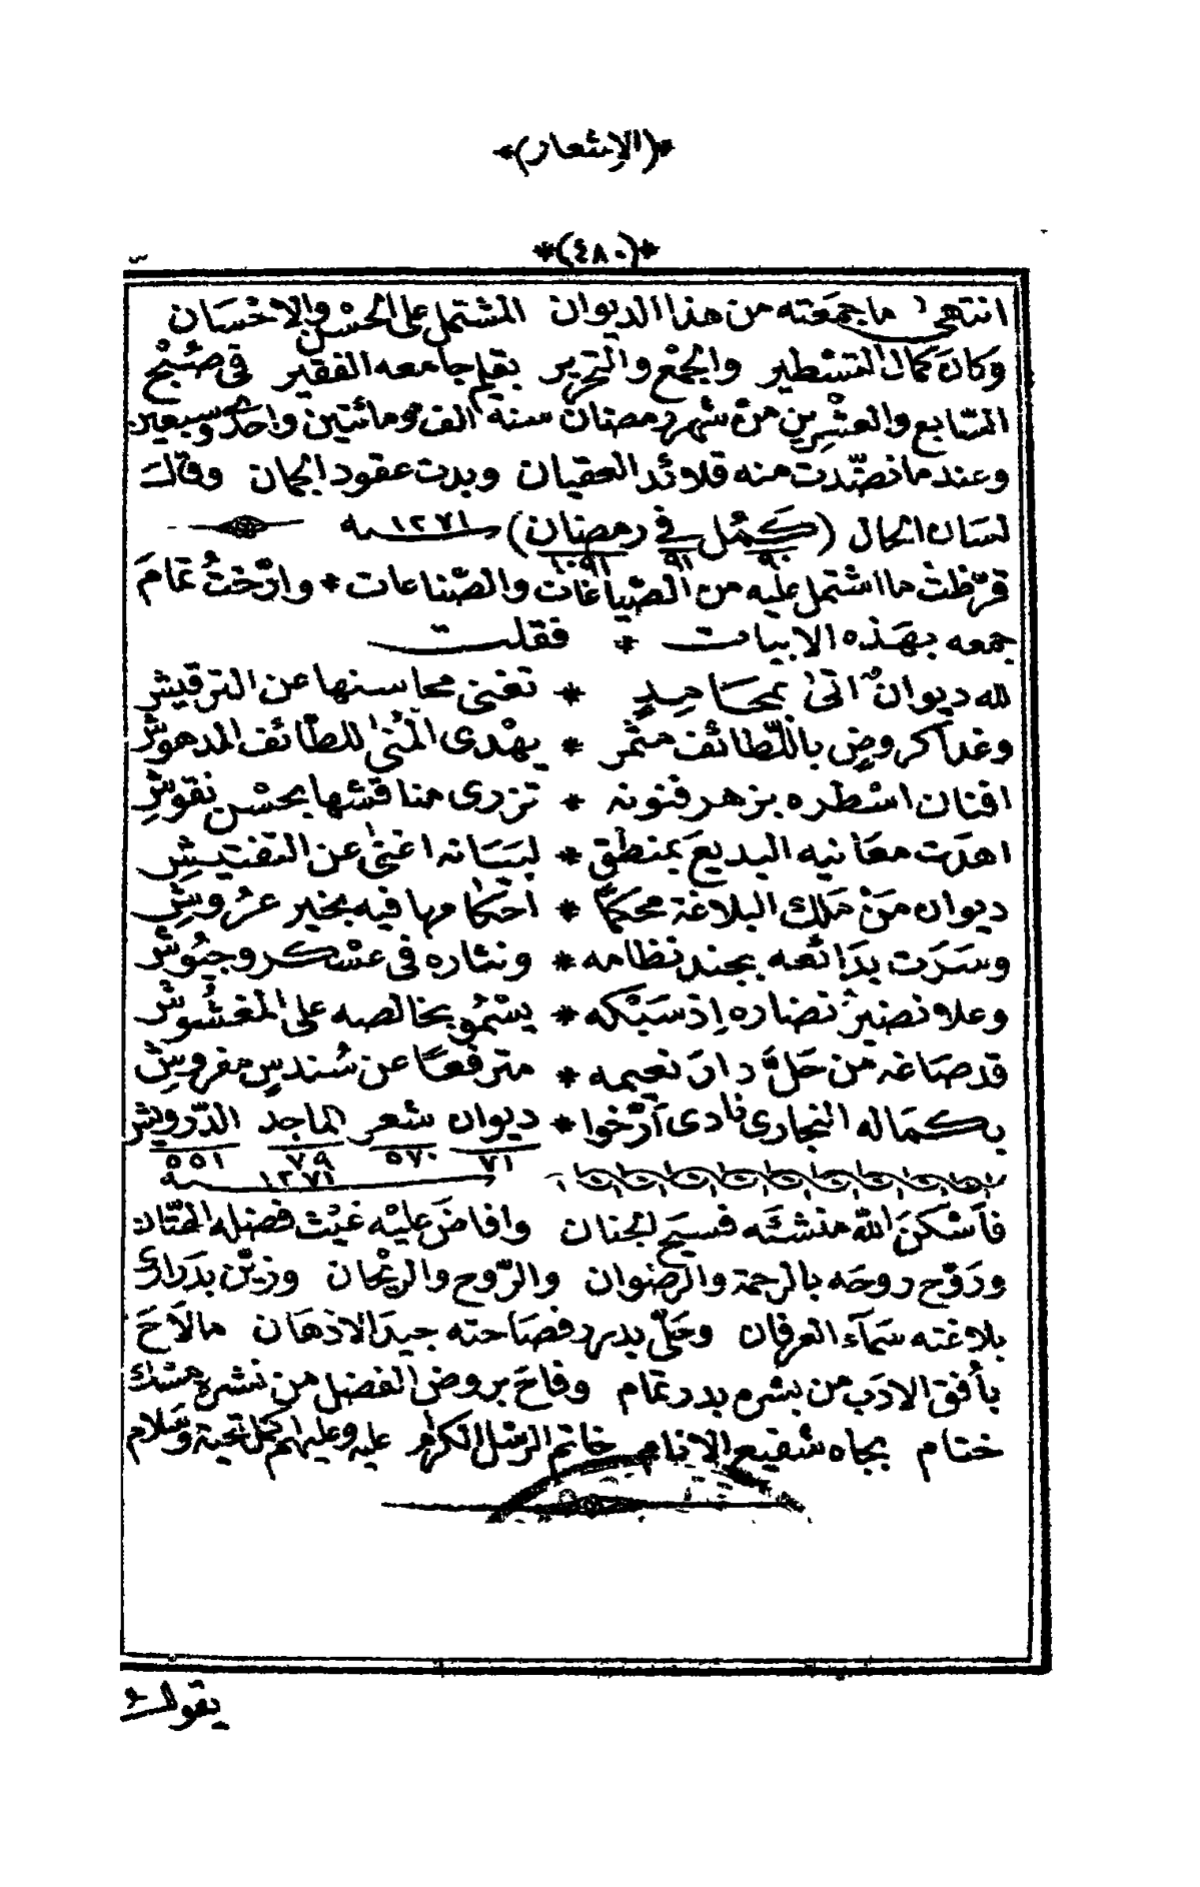 *(الإشعار)*
*(٤٨٠)*
انتهى ما جمعته من هذا الديوان المشتمل على الحسْن والاحْسَان
وكانَ كمال التسْطير والجمْع والتحرير بقلم جامعه الفقير في صُبْح
السّابع والعشْرِين من شهر رمضان سنة الف ومائتين واحدَ وسبعين
وعند ما نضّدت منه قلائد العقيان وبدت عقود الجمان وقال
لسَان الحال (كَمُل في رمضان) ١٢٧١ سنه
٩٠ ٩١ ١٠٩١
قرّظتُ ما اشتمل عليه من الصّياغات والصّناعات * وارّختُ تمامَ
جمعه بهَذه الابيات * فقلت
لله ديوانٌ اتىٰ بمحَامِدٍ * تغنى محاسنها عن الترقيش
وغدا كروضٍ باللّطائف مثمر * يهْدى المُنىٰ للطّائف المدهوش
افنان اسْطره بزهر فنونه * تزرى مناقشها بحسْن نقوشِ
اهدَت معَانيه البديعَ بمنطق * لبيَانه اغنىٰ عن التفتيشِ
ديوان مَنْ مَلك البلاغة محكمًا * احْكامها فيه بخير عرُوشِ
وسَرَت بدَائعه بجند نظامه * ونثاره في عسْكر وجيُوش
وعلا نضيرُ نضاره إذ سَبْكه * يسْمُو بخالصه على المغشُوش
قد صَاغه من حَلَّ دارَ نعيمه * مترفعًا عن سُندسٍ مفروشِ
بكمَاله النجارى نادى أرّخوا * ديوان شعر الماجد الدّرويش
٧١ ٥٧٠ ٧٩ ٥٥١
١٢٧١ سنه
فأسْكنَ اللّه منشئَه فسيح الجنان وافاضَ عليْه غيْث فضله الهتّان
وروّح روحَه بالرحمة والرضوان والرّوح والريْحان وزيّن بدَرارى
بلاغته سَمآء العرفان وحَلّى بدرر فصَاحته جيدَ الاذهَان ما لاَحَ
بأفق الادَب من بشره بدر تمام وفاحَ بروض الفضل من نشره مسْك
ختام بجاه شفيع الانام خاتم الرسْل الكرام عليه وعليهم كل تحية وسَلام
يقول